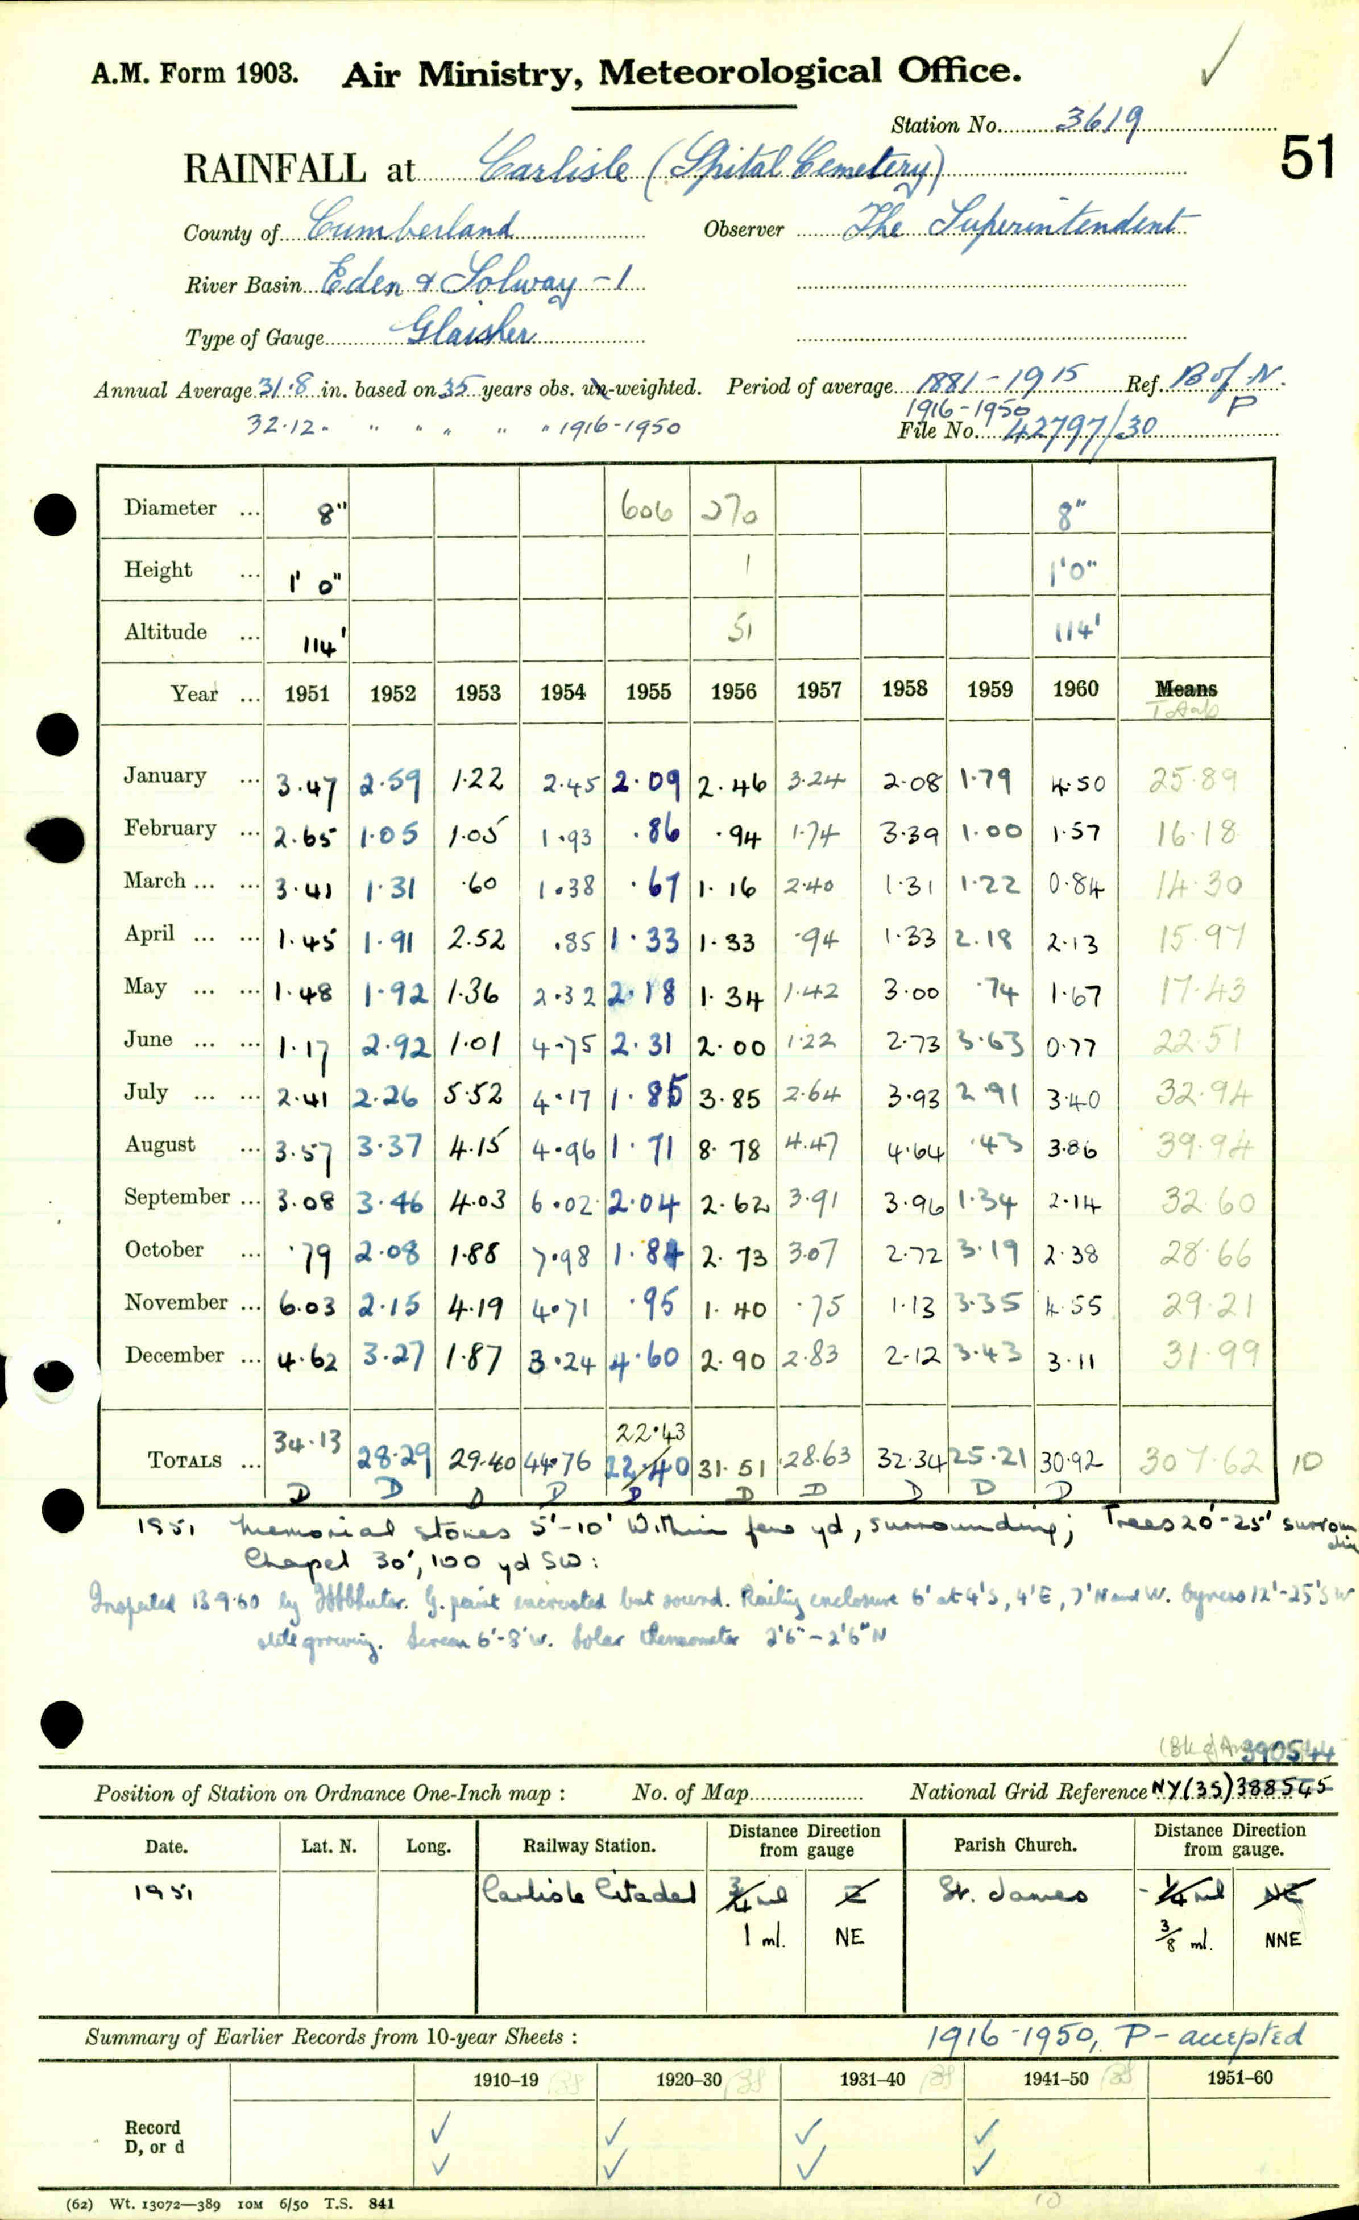 A.M. Form 1903. Air Ministry, Meteorological Office.
Station No. 3619
51
RAINFALL at Carlisle (Spital Cemetery)
County of Cumberland Observer The Superintendent
River Basin Eden & Solway - 1
Type of Gauge Glaisher
Annual Average 31.8 in. based on 35 years obs. un-weighted. Period of average 1881-1915 Ref. B of N. P
32.12 " " " " " " 1916-1950 1916-1950
File No. 42797/30
Diameter ... 8" 606 270 8"
Height ... 1' 0" 1 1'0"
Altitude ... 114' 51 114'
Year ... 1951 1952 1953 1954 1955 1956 1957 1958 1959 1960 Means
Totals
January ... 3.47 2.59 1.22 2.45 2.09 2.46 3.24 2.08 1.79 4.50 25.89
February ... 2.65 1.05 1.05 1.93 .86 .94 1.74 3.39 1.00 1.57 16.18
March ... ... 3.41 1.31 .60 1.38 .67 1.16 2.40 1.31 1.22 0.84 14.30
April ... ... 1.45 1.91 2.52 .85 1.33 1.33 .94 1.33 2.18 2.13 15.97
May ... ... 1.48 1.92 1.36 2.32 2.18 1.34 1.42 3.00 .74 1.67 17.43
June ... ... 1.17 2.92 1.01 4.75 2.31 2.00 1.22 2.73 3.63 0.77 22.51
July ... ... 2.41 2.26 5.52 4.17 1.85 3.85 2.64 3.93 2.91 3.40 32.94
August ... 3.57 3.37 4.15 4.96 1.71 8.78 4.47 4.64 .43 3.86 39.94
September ... 3.08 3.46 4.03 6.02 2.04 2.62 3.91 3.96 1.34 2.14 32.60
October ... .79 2.08 1.88 7.98 1.84 2.73 3.07 2.72 3.19 2.38 28.66
November ... 6.03 2.15 4.19 4.71 .95 1.40 .75 1.13 3.35 4.55 29.21
December ... 4.62 3.27 1.87 3.24 4.60 2.90 2.83 2.12 3.43 3.11 31.99
22.43
TOTALS ... 34.13 28.29 29.40 44.76 22.40 31.51 28.63 32.34 25.21 30.92 307.62 10
D D D D D D D D D D
1951 Memorial stones 5'-10' Within few yd, surrounding; Trees 20'-25' surrounding
Chapel 30', 100 yd SW:
Inspected 13.9.60 by G. paint encrusted but sound. Railing enclosure 6' at 4'S, 4'E, 7'N and W. Cypress 12'-25'SW
still growing. Screen 6'-8'W. Solar thermometer 2'6"-2'6"N
390544
Position of Station on Ordnance One-Inch map : No. of Map National Grid Reference NY(35)388545
Date. Lat. N. Long. Railway Station. Distance Direction from gauge Parish Church. Distance Direction from gauge.
1951 Carlisle Citadel 3/4 ml E St. James 1/4 ml NE
1 ml. NE 3/8 ml. NNE
Summary of Earlier Records from 10-year Sheets : 1916-1950, P - accepted
1910–19 1920–30 1931–40 1941–50 1951–60
Record ✓ ✓ ✓ ✓
D, or d ✓ ✓ ✓ ✓
(62) Wt. 13072—389 10M 6/50 T.S. 841
10